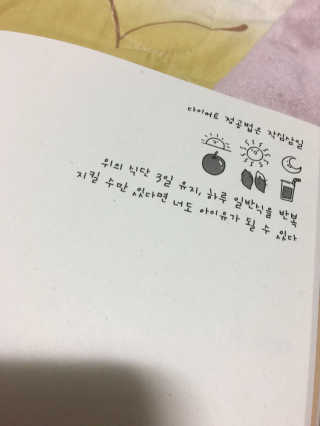 다이어트 정공법은 작심삼일
위의 식단 3일 유지, 하루 일반식을 반복
지킬 수만 있다면 너도 아이유가 될 수 있다